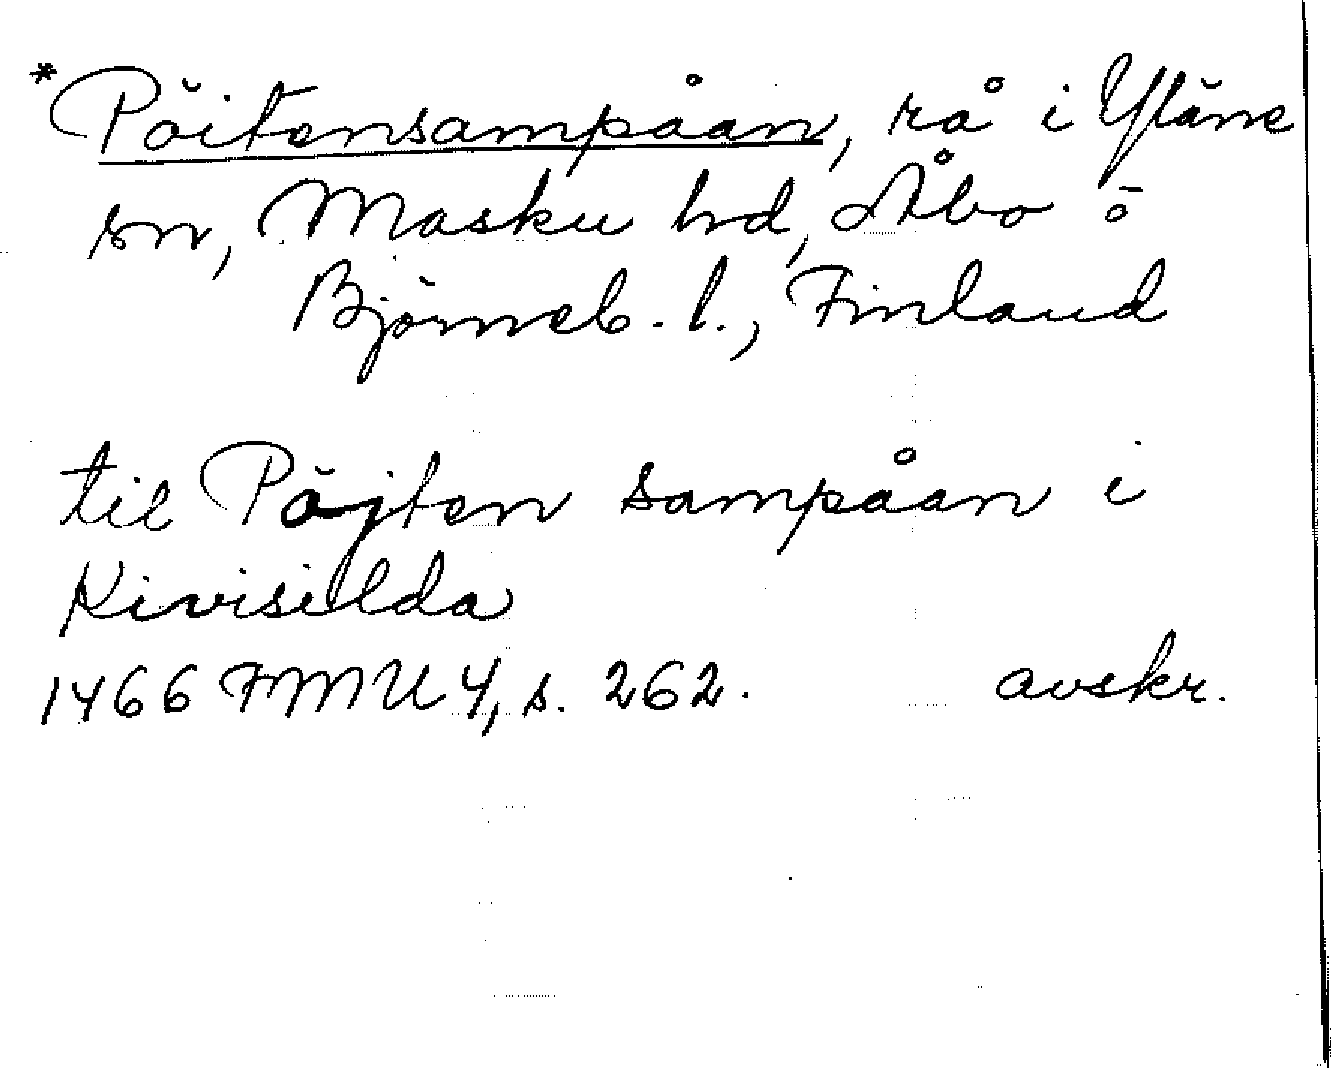 *Pöitensampåan, rå i Yläne
sn, Masku hd, Åbo o
Björneb. l., Finland
til Påjten sampåan i
Kivisilda
1466 FMU 4, s. 262. avskr.